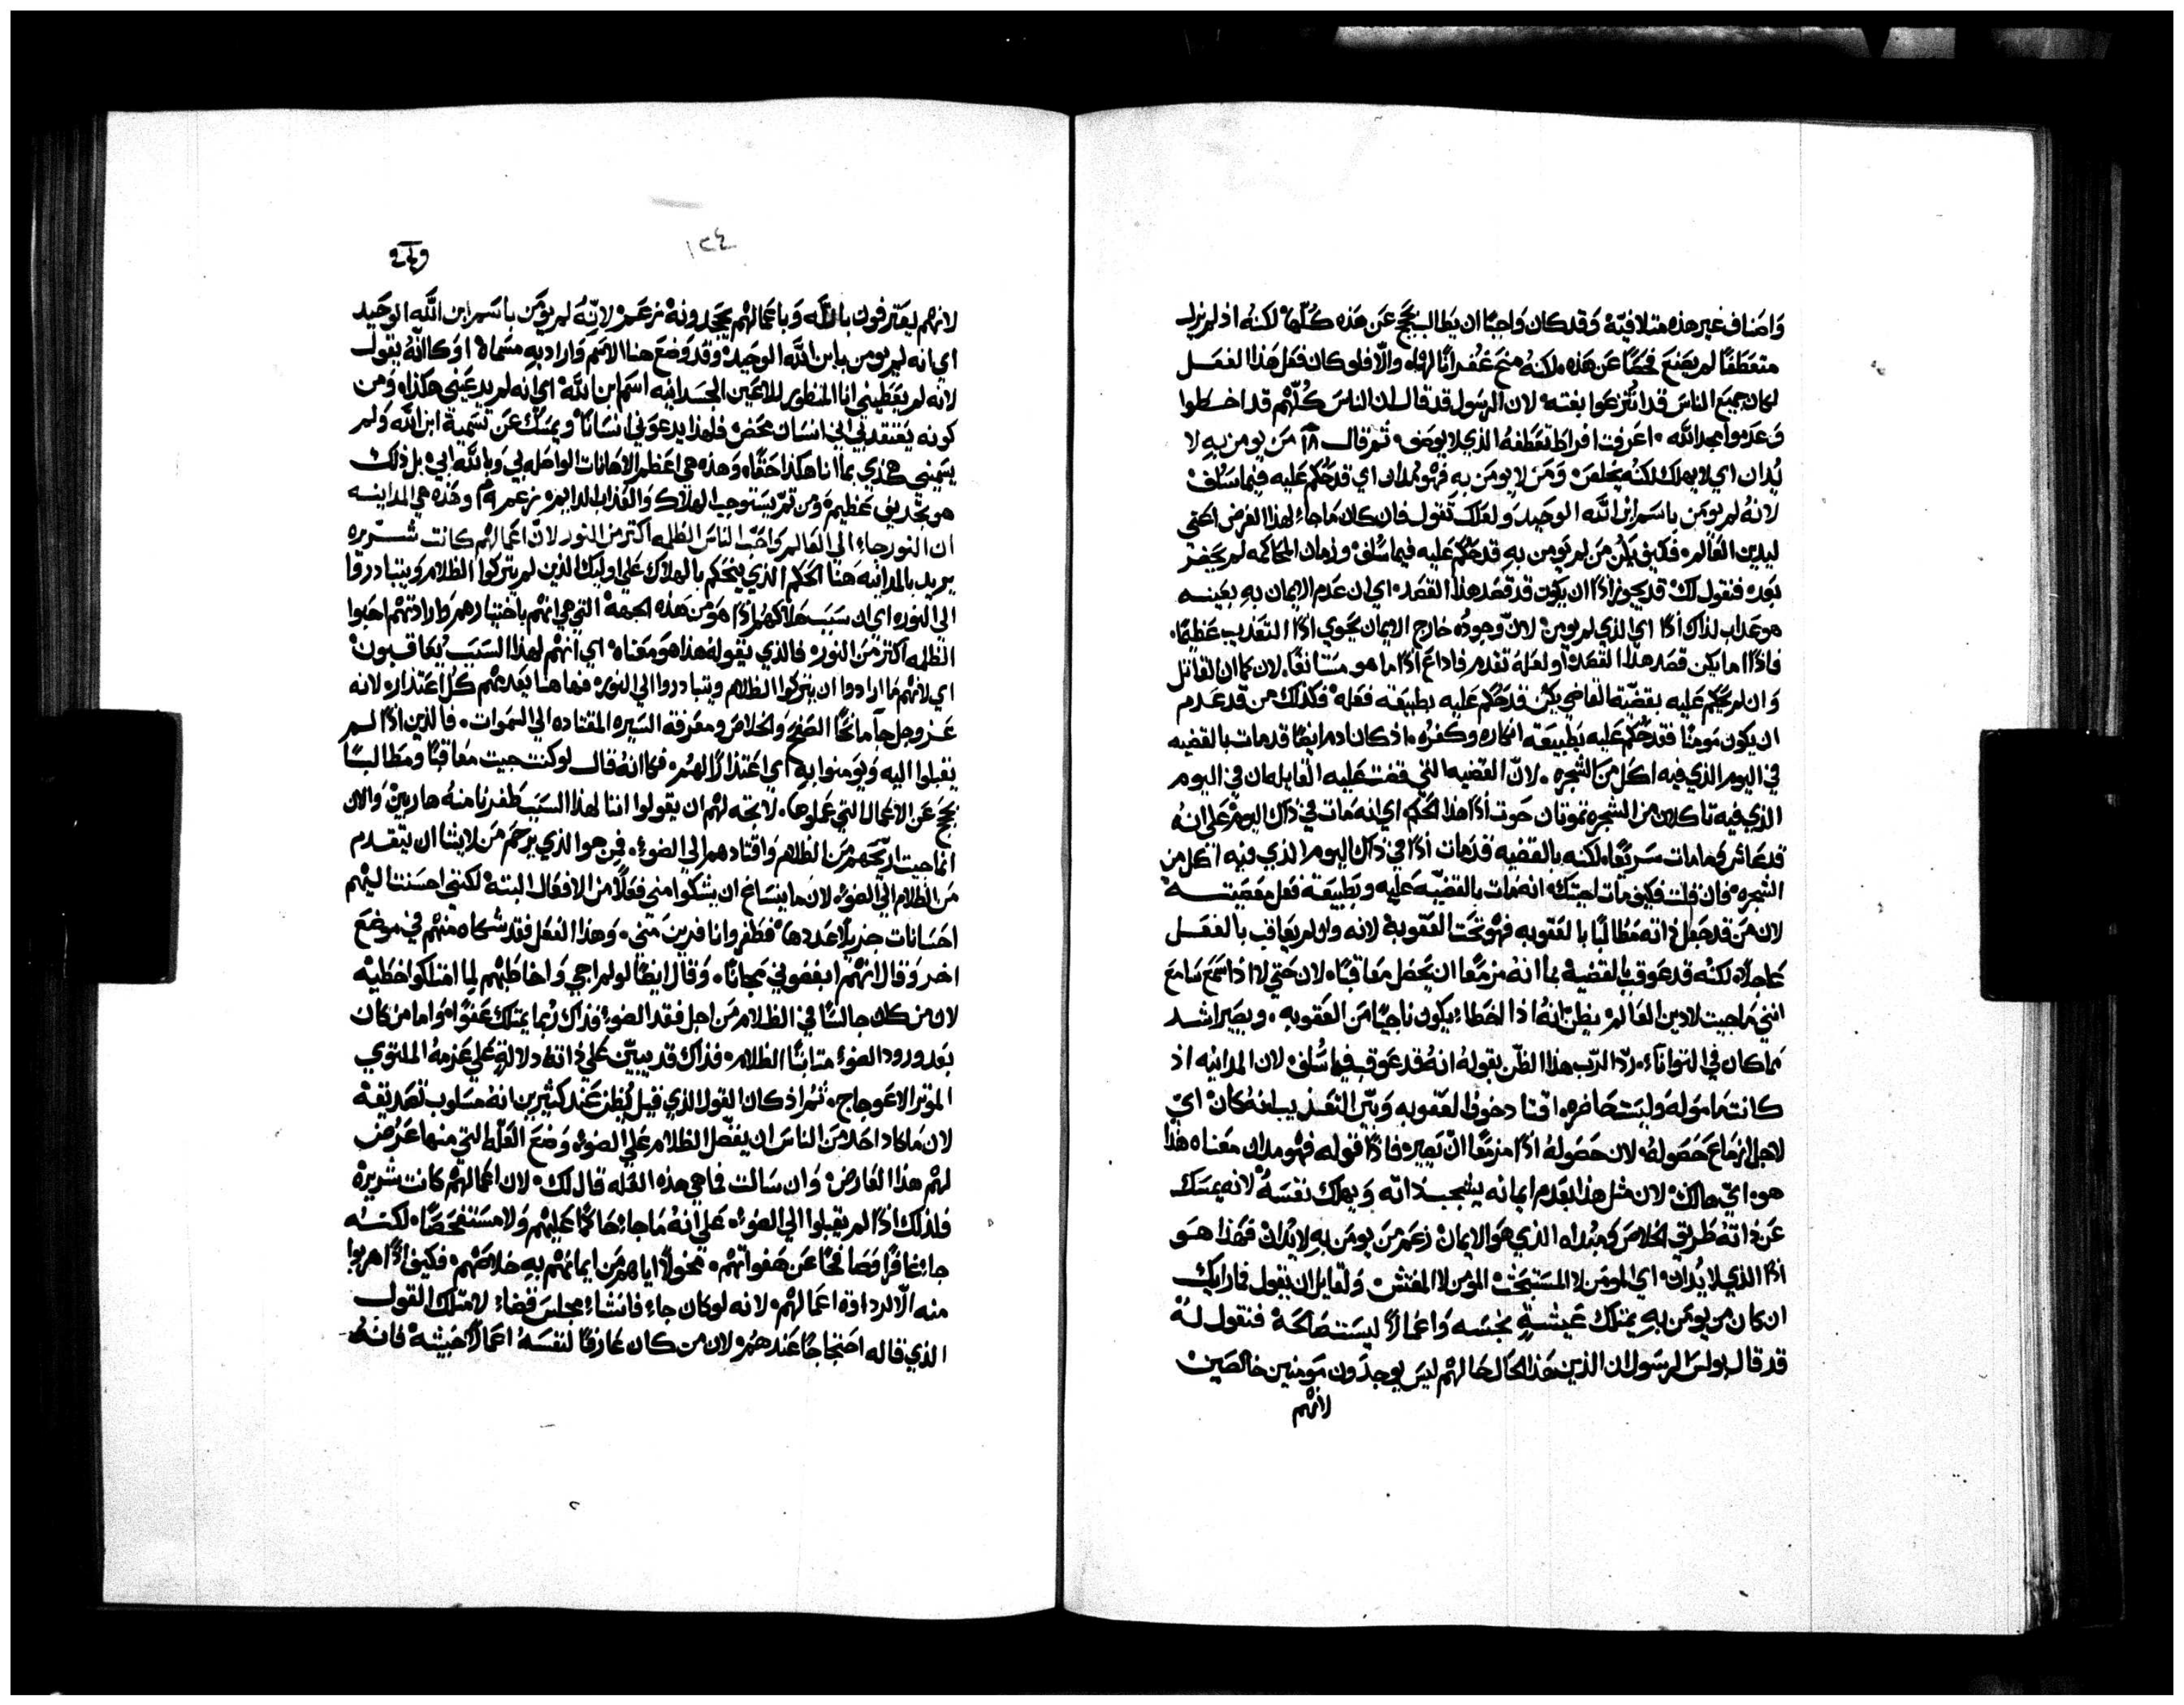 واصناف غير هذه متلافيّة وقد كان واجبًا ان يطالب بحجج عن هذه كُلّها لكنه اذ لم يزل
متعطفًا لم يصنع فحصًا عن هذه لكنه منح غفرانًا لهاه والّا فلو كان فعل هذا الفعل
لكان جميع الناس قد انتزعوا بغته لان الرسول قد قال ان الناس كُلّهم قد اخطوا
وعدموا مجد الله اعرفت افراط تعطفه الذي لا يوصف ثم قال ١٨ من يومن به لا
يُدان اي لا يهلك لكنه يخلص ومن لا يومن به فهو مدان اي قد حُكم عليه فيما سلف
لانه لم يومن باسم ابن الله الوحيد ولعلك تقول فان كان ما جاء لهذا الغرض لكي
ليدين العالم فكيف يكن من لم يومن به قد حُكم عليه فيما سلف وزمان المحاكمه لم يحضر
بعد فنقول لك قد يجوز اذًا ان يكون قد قصد هذا القصد اي ان عدم الايمان به بعينه
هو عذاب لذاك اذًا اي الذي لم يومن لان وجوده خارج الايمان يحوي اذًا التعذيب عظيمًا
فاذًا اما يكن قصد هذا القصد او لعله تقدم فاذاع اذًا ما هو مستانفًا لان كما ان القاتل
وان لم يحكم عليه بقضيّة القاضي يكن قد حُكم عليه بطبيعة فعله فكذلك من قد عدم
ان يكون مومنًا فقد حُكم عليه بطبيعة انكاره وكفره اذ كان ادم ايضًا قد مات بالقضيه
في اليوم الذي فيه اكل من الشجره لان القضيه التي قضت عليه القايله ان في اليوم
الذي فيه تاكلان من الشجره تموتان حوت اذًا هذا الحكم اي انه مات في ذاك اليوم على انه
قد عاش وما مات سريعًا لكنه بالقضيه قد مات اذًا في ذاك اليوم الذي فيه اكل من
الشجره فان قلت فكيف مات اجبتك انه مات بالقضيّه عليه وبطبيعة فعل معصيته
لان من قد جعل ذاته مطالبًا بالعقوبه فهو تحت العقوبه لانه وان لم يعاقب بالفعل
عاجلًا لكنه قد عوقب بالقضيه بما انه مزمعًا ان يحصل معاقبًا لان حتى لا اذا سمع سامع
انني ما جيت لادين العالم يظن انه اذا اخطاء يكون ناجيًا من العقوبه ويصير اشد
مما كان في التواناء ردّ الرب هذا الظن بقوله انه قد عوقب فيما سلف لان المداينه اذ
كانت مامولة وليست حاضره افتا دخوف العقوبه وبيّن التعذيب انه كان اي
لاجل ازماع حصوله لان حصوله اذًا مزمعًا ان يصير فاذًا قوله فهو مدان معناه هذا
هو اي هالك لان مثل هذا بعدم ايمانه يشجب ذاته ويهلك نفسه لانه يمسك
عن ذاته طريق الخلاص ومبداه الذي هو الايمان زعم من يومن به لا يدان فهذا هو
اذًا الذي لا يُدان اي المومن لا المستبحث المومن لا المفتش ولقايل ان يقول فارايك
ان كان من يومن به يمتلك عيشةً نجسه واعمالًا ليست صالحة فنقول له
قد قال بولس الرسول ان الذين هذا الحال حالهم ليس يوجدون مومنين خالصين
لانهم
١٢٤
لانهم يعترفون بالله وباعمالهم يجحدونه زعم لانّه لم يومن باسم ابن الله الوحيد
اي انه لم يومن بابن الله الوحيد وقد وضع هنا الاسم واراد به مسماه او كانّه يقول
لانه لم يعطيني انا المنظور للاعين الجسدانيه اسم ابن الله اي انه لم يدعيني هكذا ومن
كونه يعتقدني اني انسان محض فلهذا يدعوني انسانًا ويمسك عن تسمية ابن الله ولم
يسميني هكذي بما انا هكذا حقًا وهذه هي اعظم الاهانات الواصله بي وبالله ابي بل ذلك
هو تجديف عظيم ومن ثمّ يستوجب الهلاك والعذاب الدايم زعم ١٩ وهذه هي المداينه
ان النور جاء الى العالم واحبّ الناس الظلمه اكثر من النور لانّ اعمالهم كانت شرّيره
يريد بالمداينه هنا الحكم الذي يحكم بالهلاك على اوليك الذين لم يتركوا الظلام ويتبادروا
الى النور اي ان سبب هلاكهم اذًا هو من هذه الجهة التي هي انهم باختيارهم وارادتهم احبوا
الظلمه اكثر من النور فالذي يقوله هذا هو معناه اي انهم لهذا السبب يُعاقبون
اي لانهم ما ارادوا ان يتركوا الظلام ويتبادروا الى النور فهاهنا يعدمهم كل اعتذار لانه
عز وجل جاء مانحًا الصفح والخلاص ومعرفة السيره المقتاده الى السموات فالذين اذًا لم
يقبلوا اليه ويومنوا به اي اعتذارًا لهم فكانه قال لو كنت جيت معاقبًا ومطالبًا
بحجج عن الاعمال التي عملوها لاتجه لهم ان يقولوا اننا لهذا السبب طفرنا منه هاربين والان
انما جيت اريّحهم من الظلام واقتادهم الى الضوء فمن هو الذي يرحم من لا يشا ان يتقدم
من الظلام الى الضوء لان ما ينساغ ان يشكوا مني فعلًا من الافعال البتة لكنني احسنت اليهم
احسانات جزيلًا عددها فطفروا نافرين مني وهذا الفعل فقد شكاه منهم في موضع
اخر وقال انهم ابغضوني مجانًا وقال ايضًا لو لم اجي واخاطبهم لما امتلكوا خطيّه
لان من كان جالسًا في الظلام من اجل فقد الضوء فذاك ربما يمتلك عفوًا واما من كان
بعد ورود الضوء متابثًا الظلام فذاك قد يبيّن على ذاته دلالةً على عزمه الملتوي
الموثر الاعوجاج ثم اذ كان القول الذي قيل يُظن عند كثيرين انه مسلوب تصديقه
لان ما كاد احد من الناس ان يفضّل الظلام على الضوء وضع العلّه التي منها عرض
لهم هذا العارض وان سالت فما هي هذه العله قال لك لان اعمالهم كانت شريره
فلذلك اذًا لم يقبلوا الى الضوء على انه ما جاء حاكمًا عليهم ولا مستفحصًا لكنه
جاء غافرًا صافحًا عن هفواتهم مخولًا اياهم من ايمانهم به خلاصهم فكيف اذًا هربوا
منه الّا لرداوة اعمالهم لانه لو كان جاء فانشاء مجلس قضاء لامتلك القول
الذي قاله احتجاجًا عندهم لان من كان عارفًا لنفسه اعمالًا خبيثه فانه